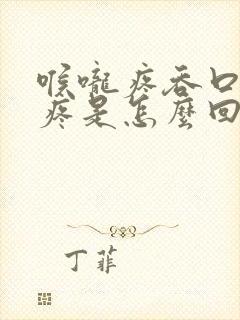 喉嚨疼吞口
疼是怎麼回
丁菲